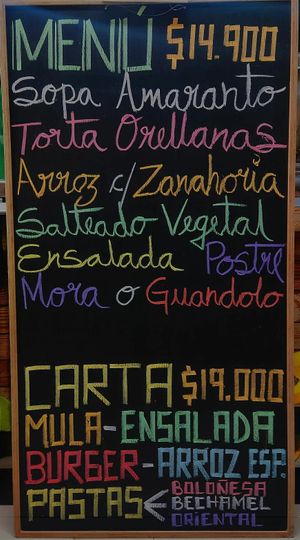 MENÚ $14.900
Sopa Amaranto
Torta Orellanas
Arroz c/ Zanahoria
Salteado Vegetal
Ensalada Postre
Mora o Guandolo
CARTA $19.000
MULA-ENSALADA
BURGER-ARROZ ESP.
PASTAS < BOLOÑESA
BECHAMEL
ORIENTAL